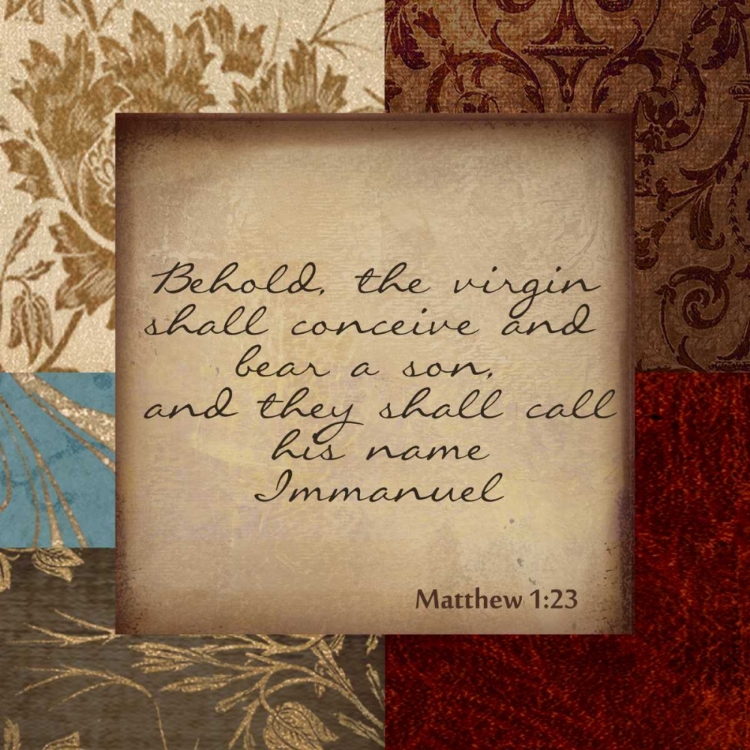 Behold, the virgin
shall conceive and
bear a son,
and they shall call
his name
Immanuel
Matthew 1:23